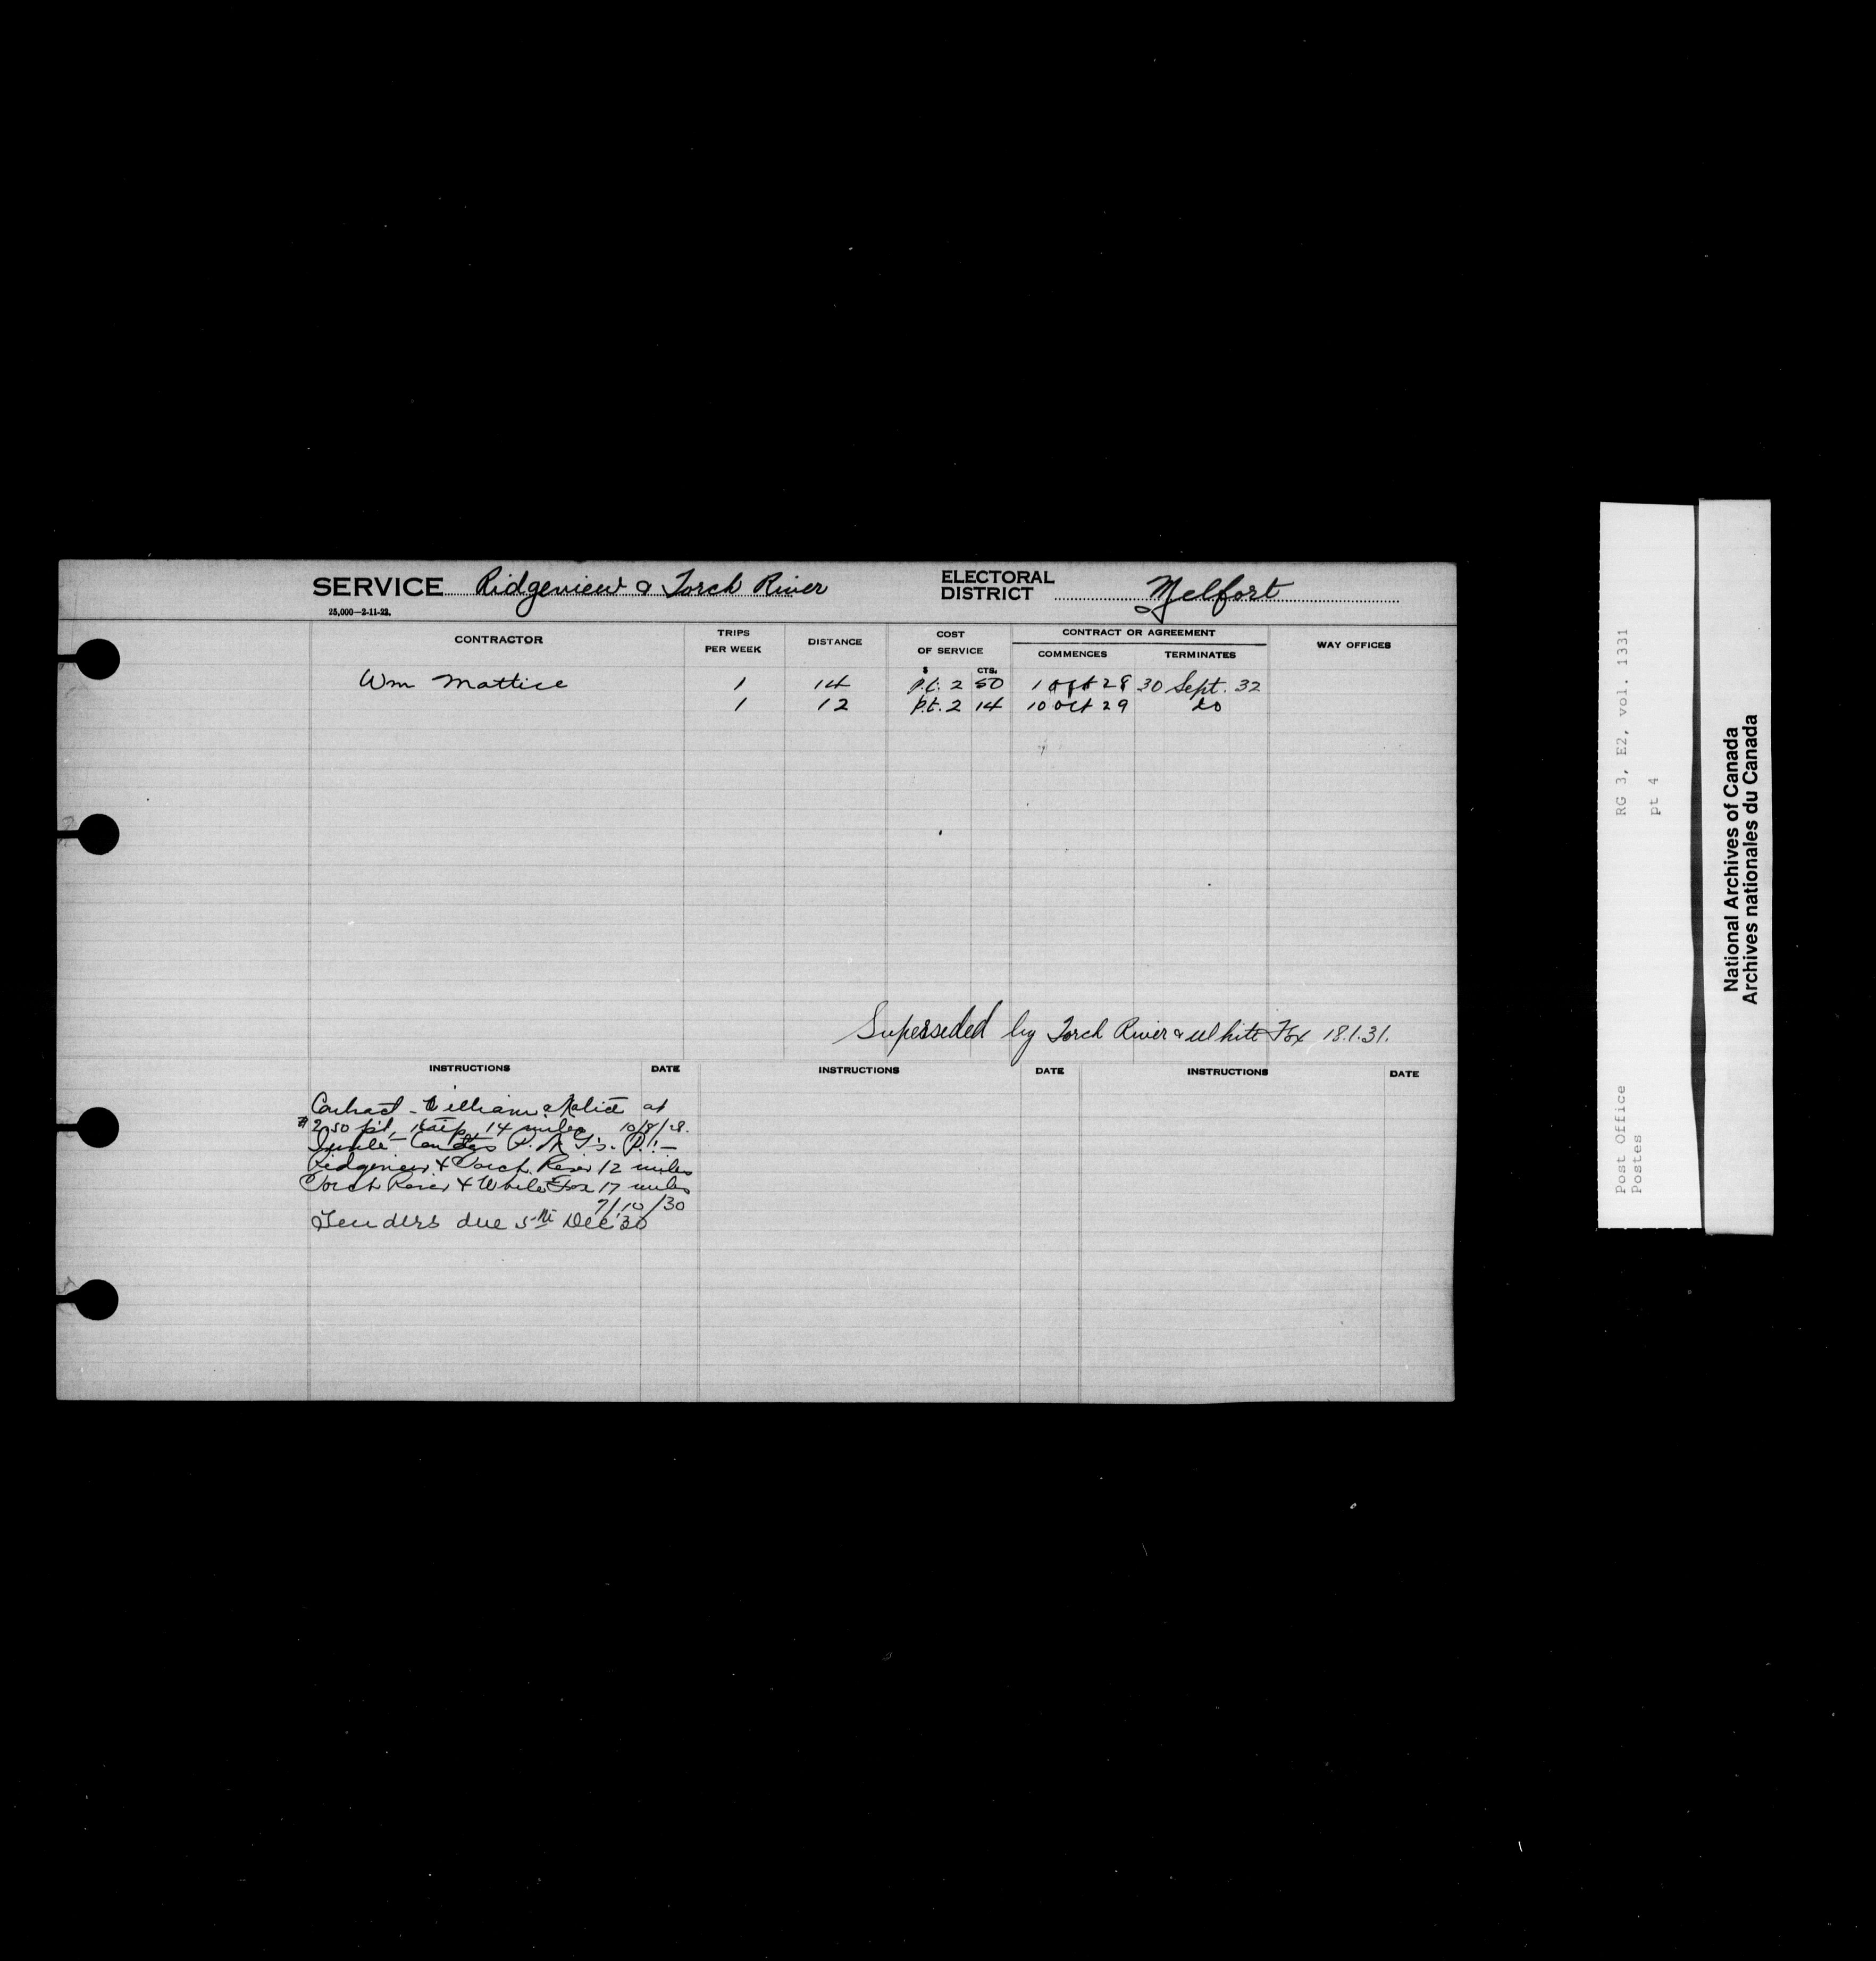 SERVICE Ridgeview & Torch River ELECTORAL DISTRICT Melfort
25,000—2-11-22.
CONTRACTOR TRIPS PER WEEK DISTANCE COST OF SERVICE CONTRACT OR AGREEMENT COMMENCES TERMINATES WAY OFFICES
$ CTS.
Wm Mattice 1 14 p.t. 2 50 1 28 30 Sept. 32
1 12 p.t. 2 14 10 Oct 29 do
Superseded by Torch River & White Fox 18.1.31.
INSTRUCTIONS DATE INSTRUCTIONS DATE INSTRUCTIONS DATE
Contract - William at
$2.50 p.t. 14 miles 10/8/28.
Invite
Ridgeview & Torch River 12 miles
Torch River & White Fox 17 miles
7/10/30
Tenders due 5th Dec 30
RG 3, E2, vol. 1331
pt 4
Post Office
Postes
National Archives of Canada
Archives nationales du Canada